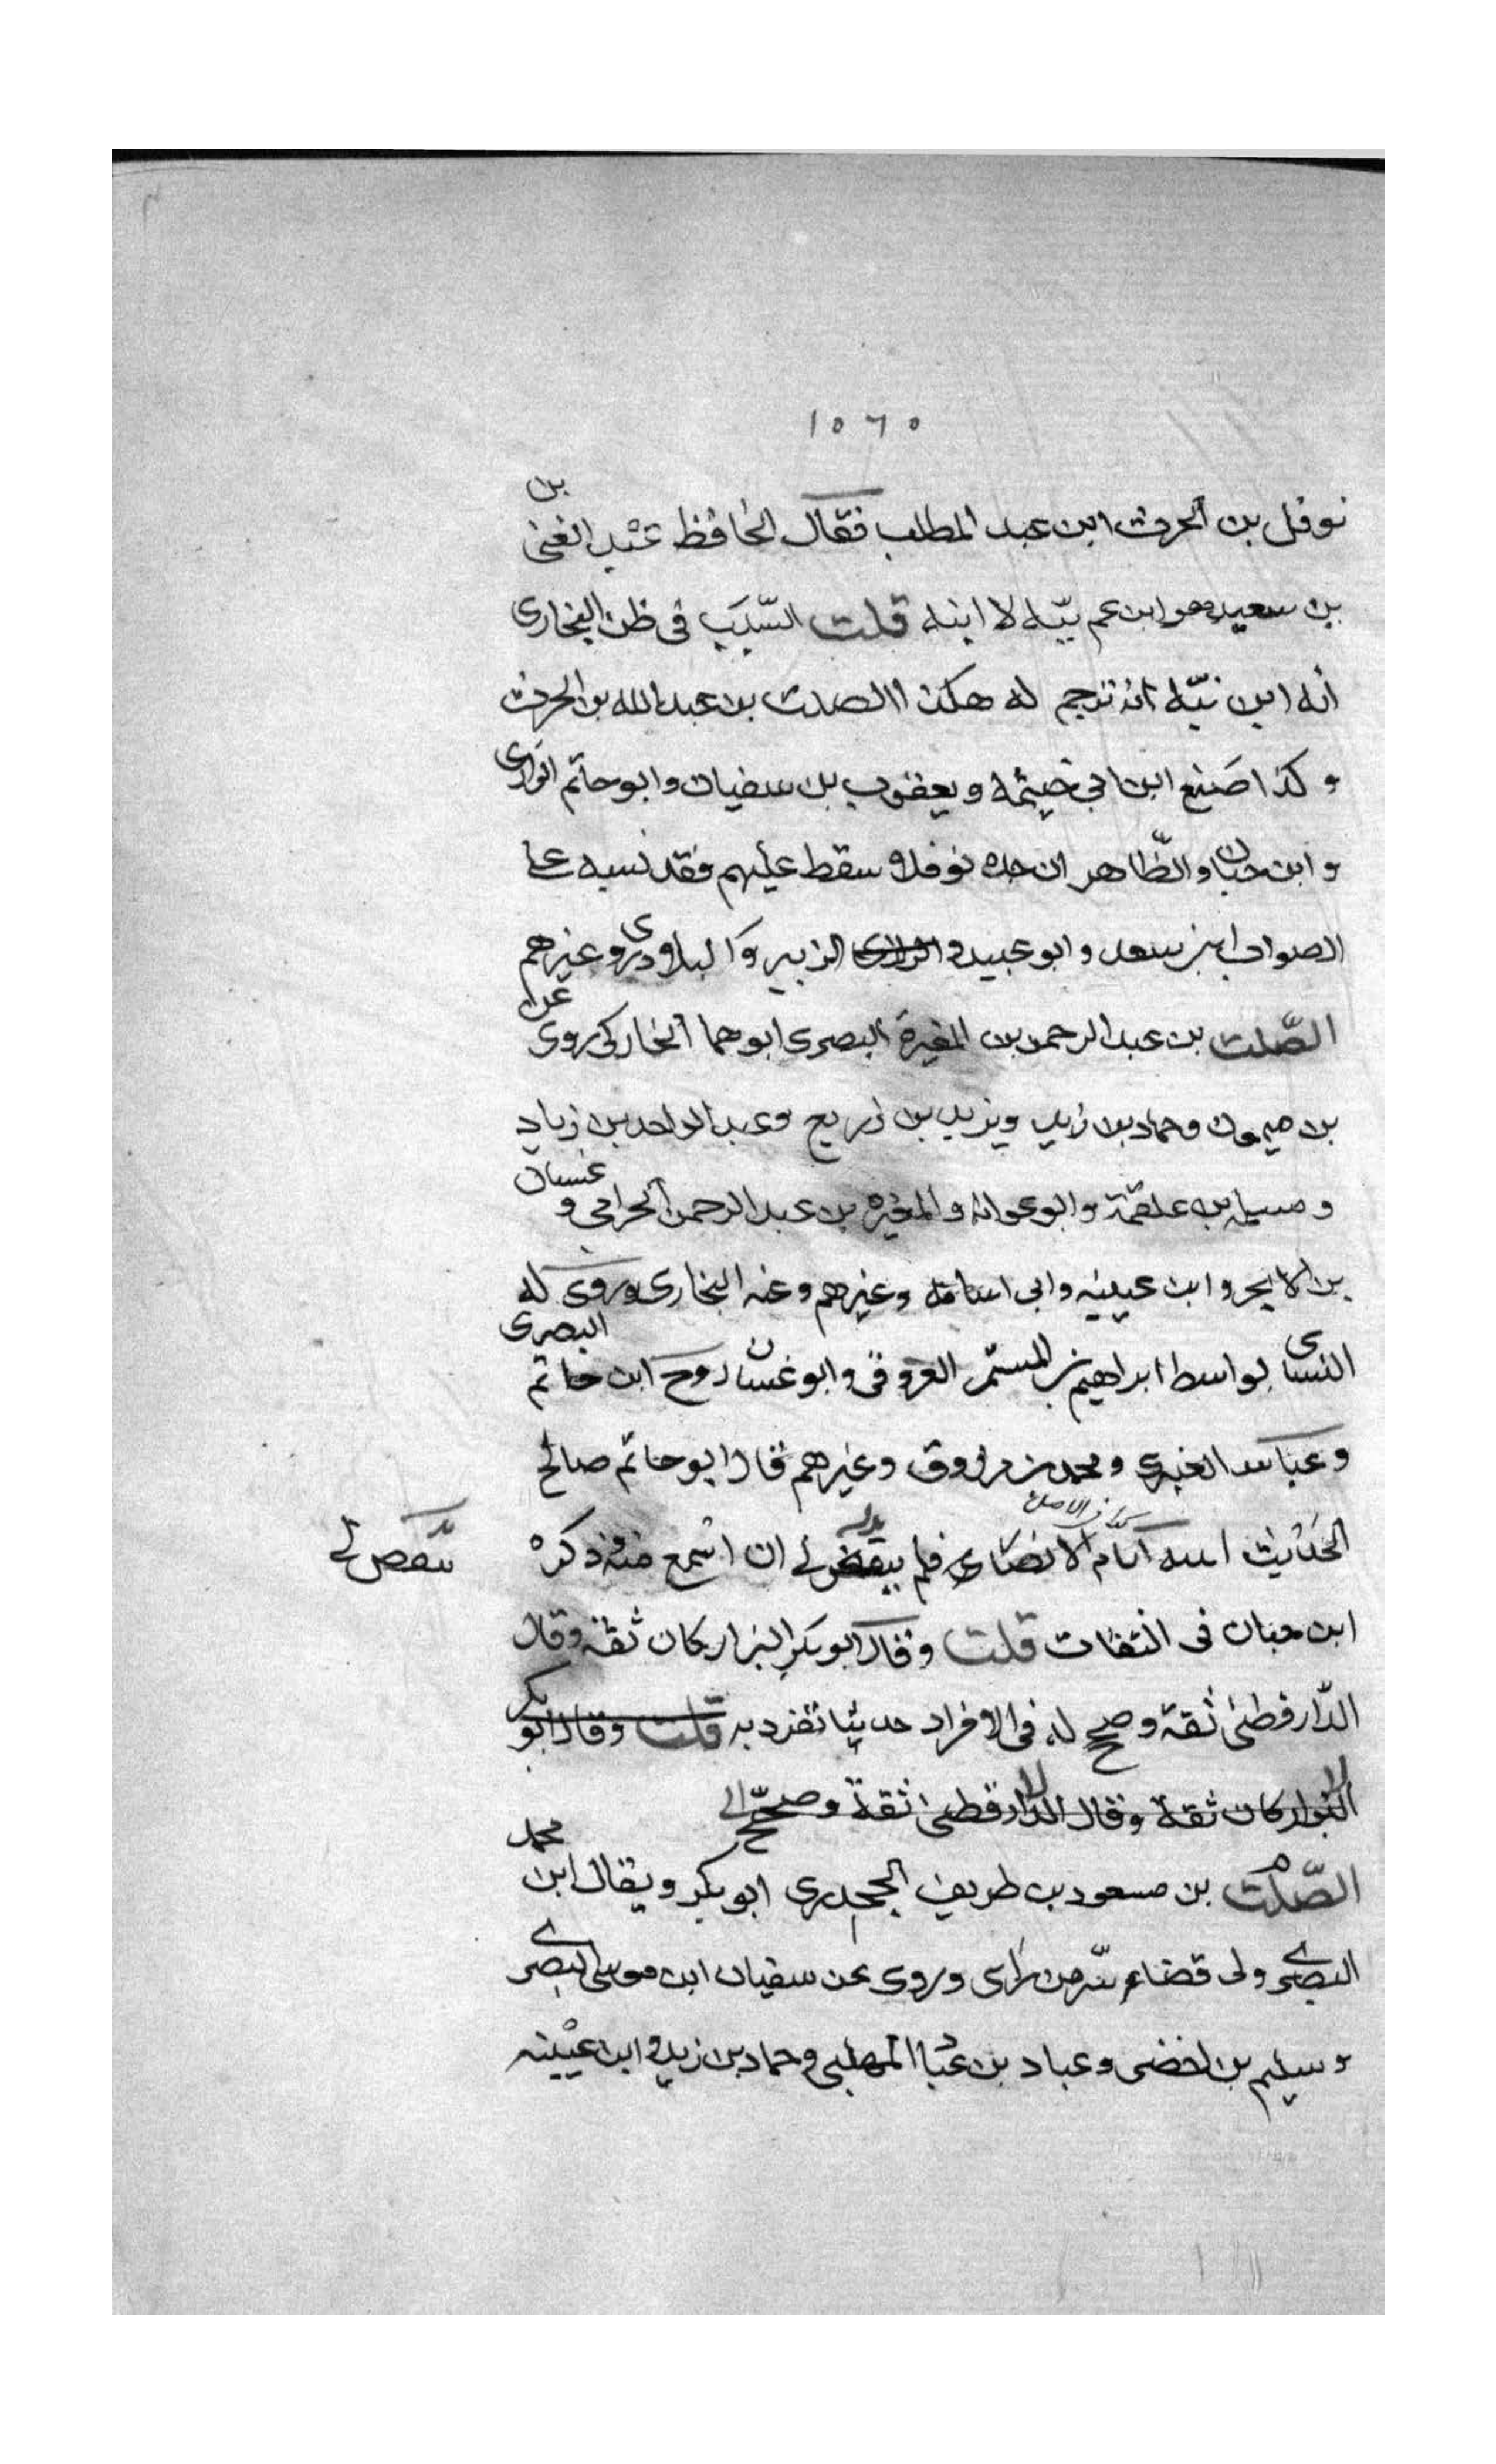 ١٥٦٥
نوفل بن الحرث ابن عبد المطلب فقال الحافظ عبد الغنى بن
بن سعيد هو ابن عم ببّه لا ابنه قلت السّبب فى ظن البخارى
أنه ابن ببّه انه ترجم له هكذا الصلت بن عبد الله بن الحرث
وكذا صنع ابن ابى خيثمة ويعقوب بن سفيان وابو حاتم الرازى
وابن حبان والظّاهر ان جده نوفلا سقط عليهم فقد نسبه على
الصواب ابن سعد وابو عبيد و الزبير والبلاذرى وغيرهم
الصّلت بن عبد الرحمن بن المغيرة البصرى ابو هما الخاركى روى عن
بن ميمون وحماد بن زيد ويزيد بن زريع وعبد الواحد بن زياد
و مسلمة بن علقمة وابو عوانه والمغيره بن عبد الرحمن الحزامى و غسان
بن الاغر وابن عيينه وابى اسامه وغيرهم وعنه البخارى وروى له
النساى بواسط ابراهيم بن المستمر العروقى وابو غسان روح ابن حاتم البصرى
وعباس العنبرى ومحمد بن مرزوق وغيرهم قال ابو حاتم صالح
الحديث اتيته ايام الانصارى فلم يقض لى ان اسمع منه وذكره
كذا فى الاصل
بدله
يتّقض لى
ابن حبان فى الثقات قلت وقال ابو بكر البزار كان ثقة وقال
الدّارقطنى ثقة وصحح له فى الافراد حديثا تفرد به قلت وقال ابو بكر
البزار كان ثقة وقال الدّارقطنى ثقة وصحّح الى
الصّلت بن مسعود بن طريف الجحدرى ابو بكر ويقال ابن محمد
البصرى ولى قضاء سّر من راى وروى عن سفيان ابن موسى البصرى
وسليم بن اخضر وعباد بن عباد المهلبى وحماد بن زيد وابن عيينه